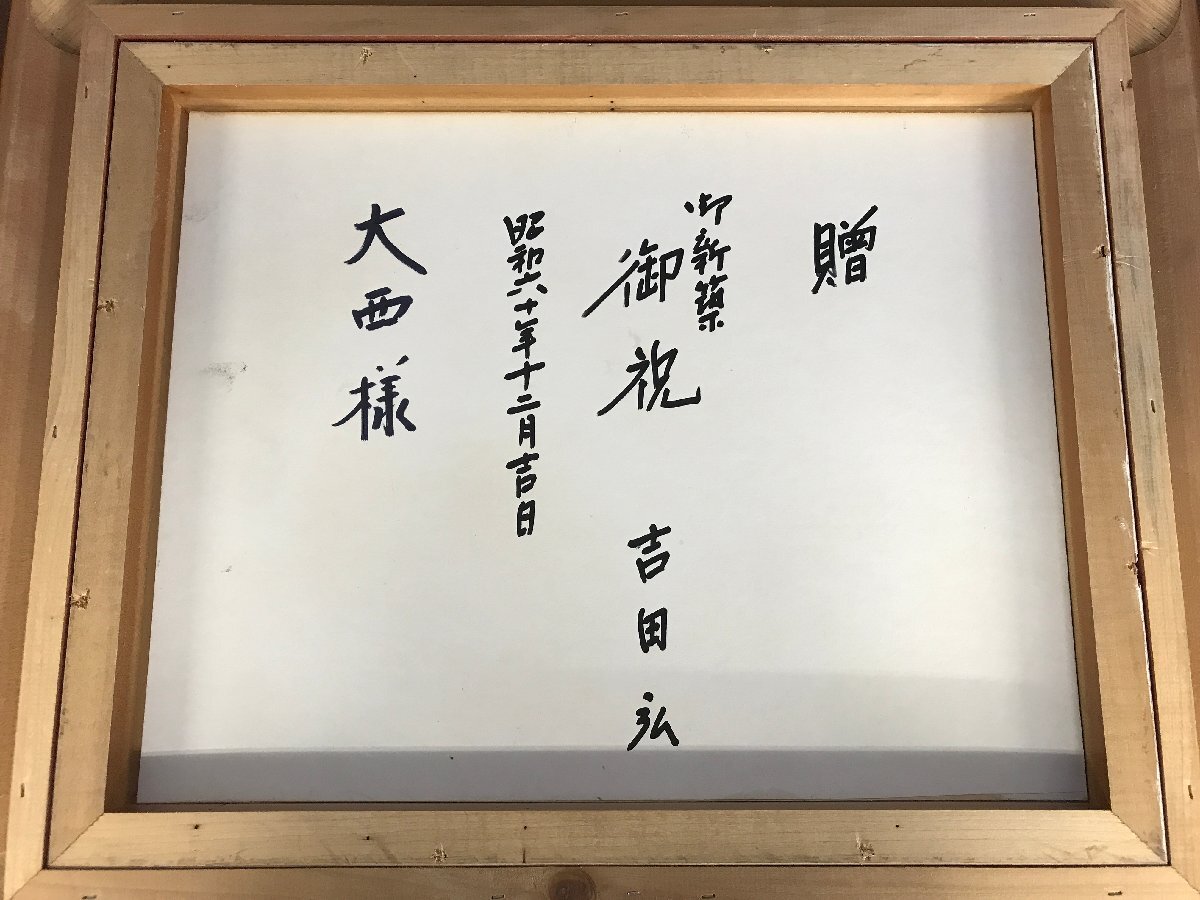 贈
御新築
御祝 吉田弘
昭和六十年十二月吉日
大西様